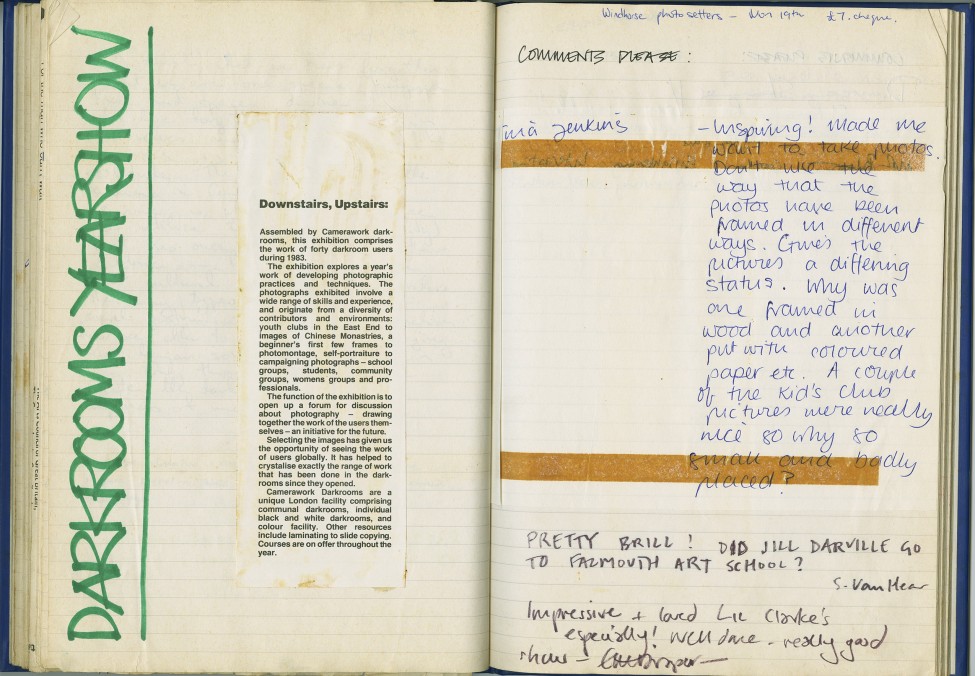 DARKROOMS YEARSHOW
Downstairs, Upstairs:
Assembled by Camerawork dark-
rooms, this exhibition comprises
the work of forty darkroom users
during 1983.
The exhibition explores a year's
work of developing photographic
practices and techniques. The
photographs exhibited involve a
wide range of skills and experience,
and originate from a diversity of
contributors and environments:
youth clubs in the East End to
images of Chinese Monastries, a
beginner's first few frames to
photomontage, self-portraiture to
campaigning photographs – school
groups, students, community
groups, womens groups and pro-
fessionals.
The function of the exhibition is to
open up a forum for discussion
about photography – drawing
together the work of the users them-
selves – an initiative for the future.
Selecting the images has given us
the opportunity of seeing the work
of users globally. It has helped to
crystalise exactly the range of work
that has been done in the dark-
rooms since they opened.
Camerawork Darkrooms are a
unique London facility comprising
communal darkrooms, individual
black and white darkrooms, and
colour facility. Other resources
include laminating to slide copying.
Courses are on offer throughout the
year.
Windhorse photosetters – Mon 19th £7. cheque.
COMMENTS PLEASE:
Tina Jenkins – Inspiring! Made me
want to take photos.
Don't like the
way that the
photos have been
framed in different
ways. Gives the
pictures a differing
status. Why was
one framed in
wood and another
put with coloured
paper etc. A couple
of the Kid's Club
pictures were really
nice so why so
small and badly
placed?
PRETTY BRILL! DID JILL DARVILLE GO
TO FALMOUTH ART SCHOOL?
S. Van Hear
Impressive + loved Liz Clarke's
especially! Well done – really good
show –